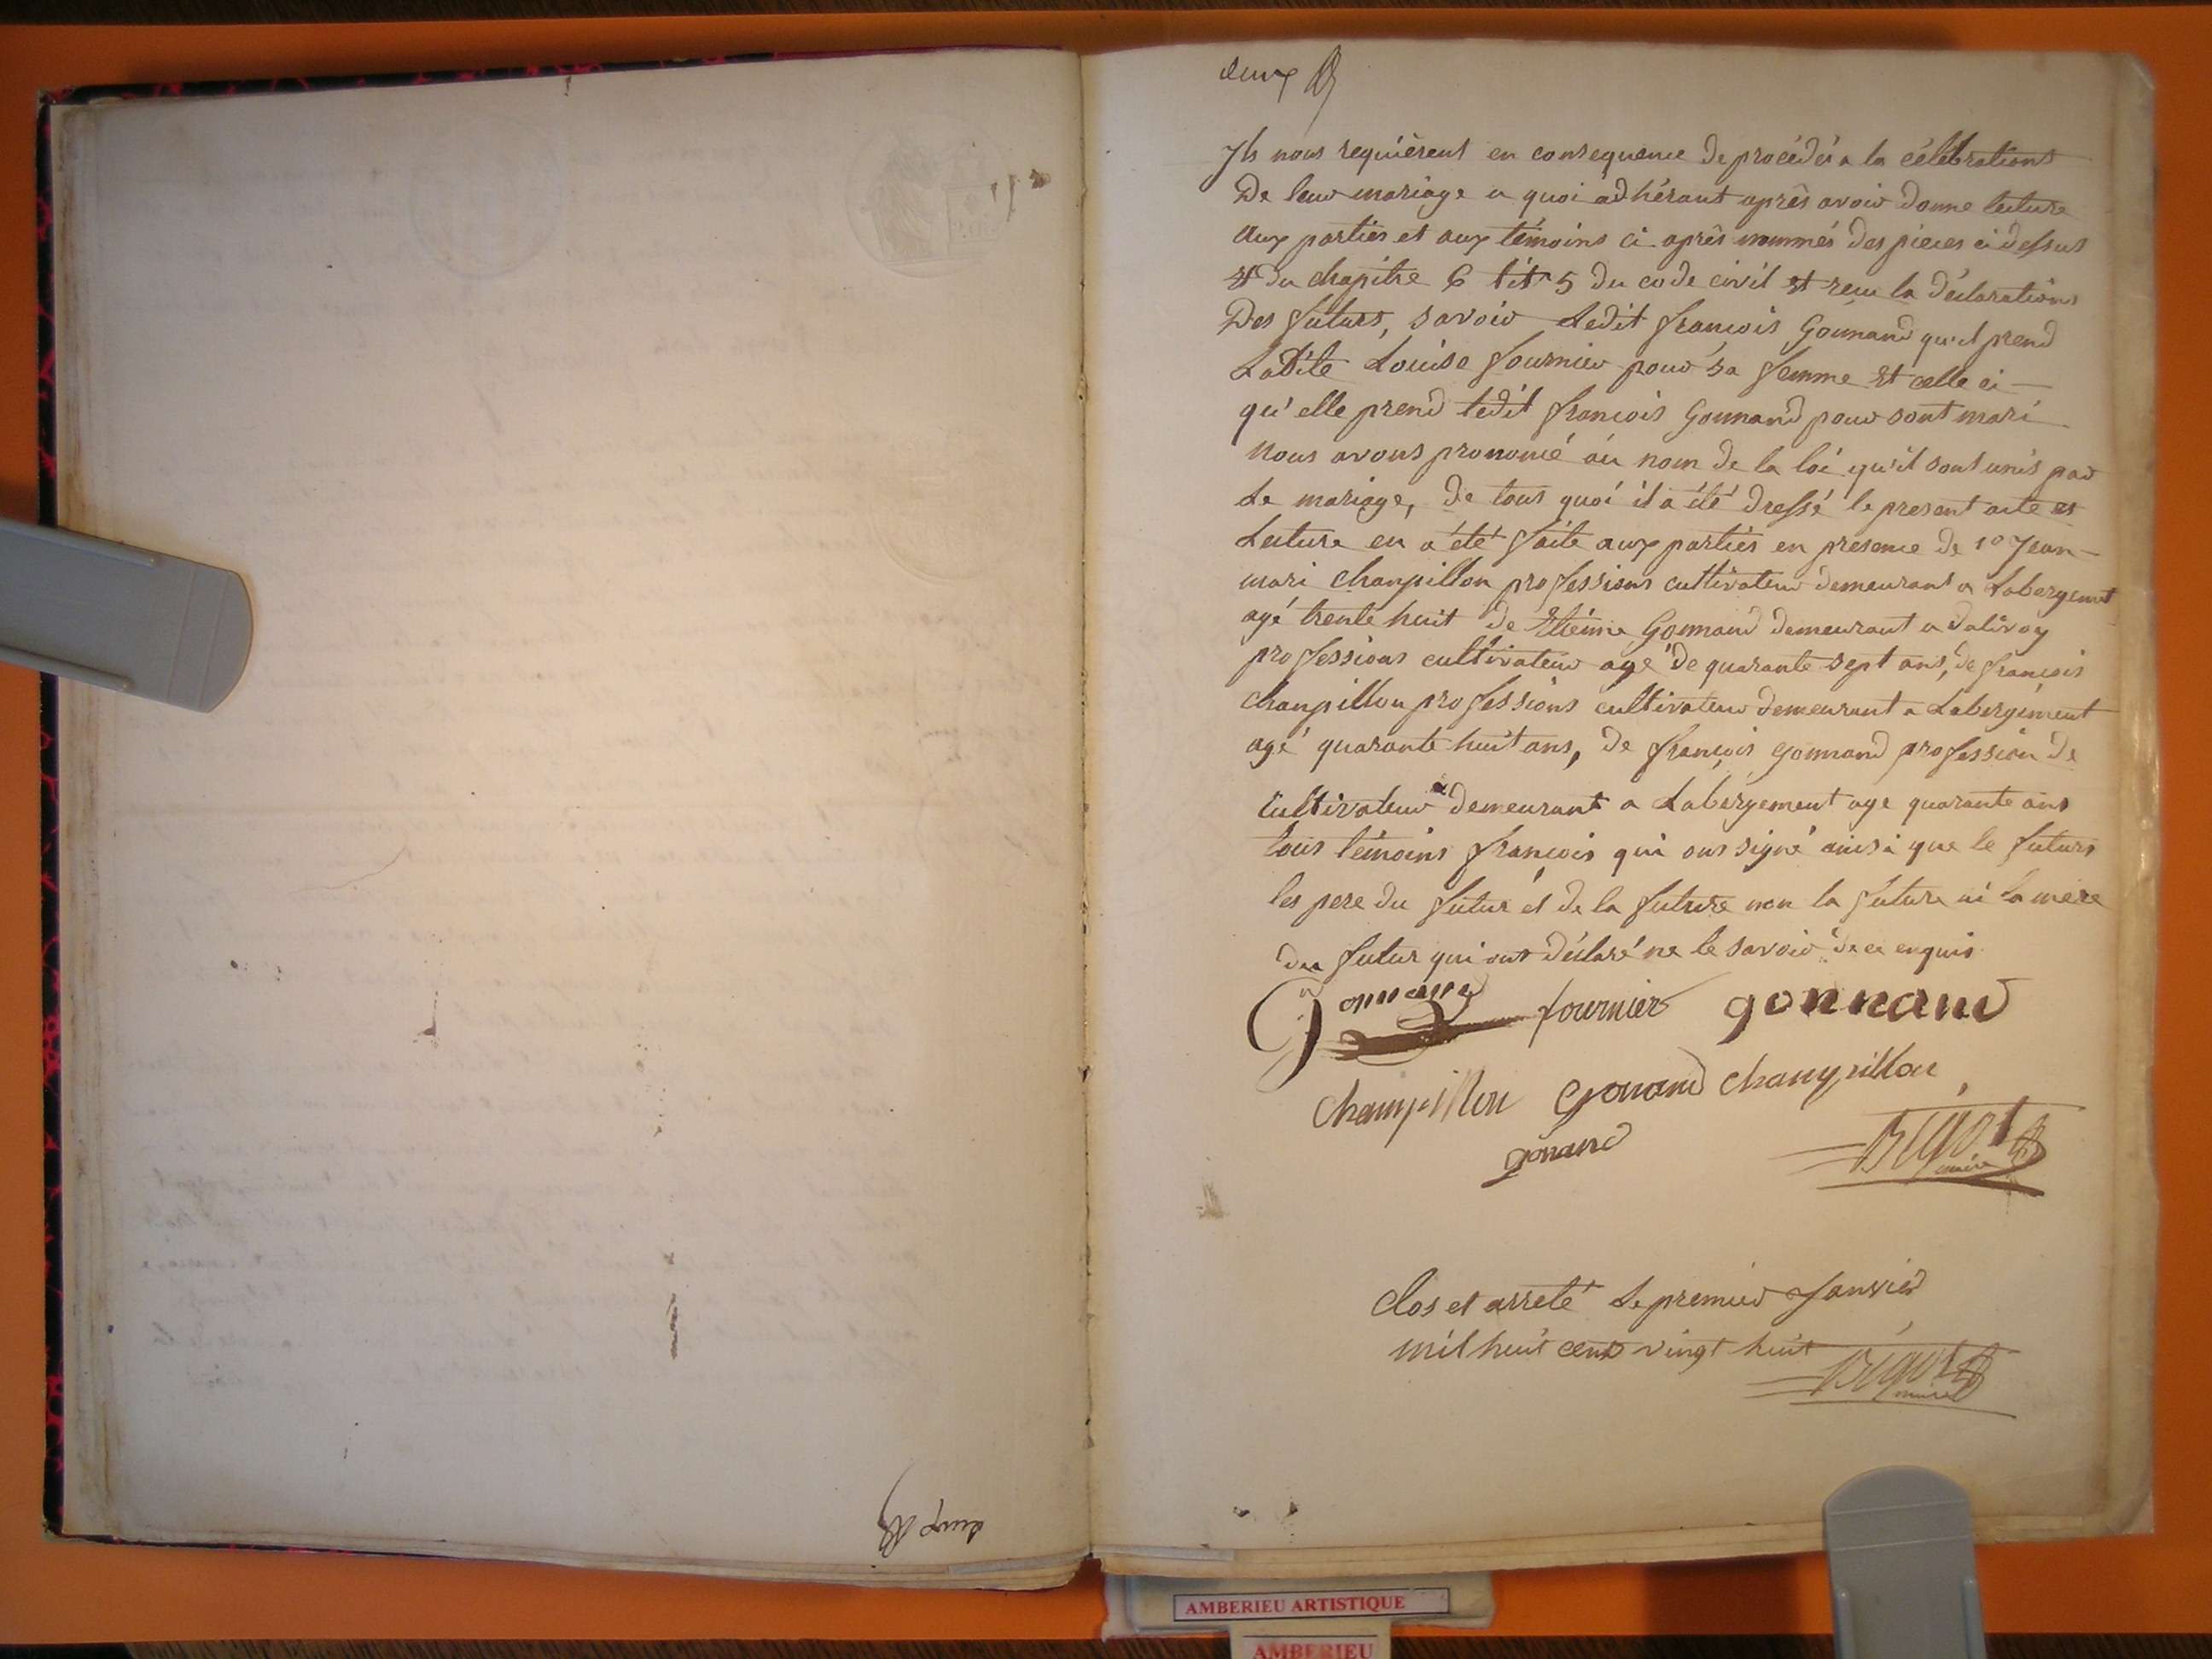 deux
Ils nous requièrent en consequence de procédér a la célébrations
De leur mariage a quoi adhérant après avoir donne lecture
Aux parties et aux témoins ci après nommés des pieces ci dessus
Et du chapitre 6 titre 5 du code civil Et reçu la déclarations
Des futurs, savoir Ledit françois Gonnand qu'il prend
Ladite Louise fournier pour sa femme Et celle ci —
qu'elle prend ledit françois Gonnand pour sont mari
Nous avons prononcé au nom de la loi qu'il sont unis par
Le mariage, de tous quoi il a été dressé le present acte et
Lecture en a été faite aux parties en presence de 1o Jean —
mari Chanpillon professions cultivateur demeurant a Labergement
agé trente huit de Etienne Gonnand demeurant a
professions cultivateur agé de quarante sept ans, de françois
Chanpillon professions cultivateur demeurant a Labergement
agé quarante huit ans, de françois gonnand profession de
Cultivateur demeurant a Labergement age quarante ans
tous témoins françois qui ont signé ainsi que le futurs
les pere du futur et de la future non la future ni la mere
du futur qui ont déclaré ne le savoir de ce enquis
Gonnand fournier gonnand
Champillon Gonand Champillon
gonand
Bigot
maire
Clos et arreté Le premier Janvier
mil huit cent vingt huit
Bigot
maire
deux
AMBERIEU ARTISTIQUE
AMBERIEU